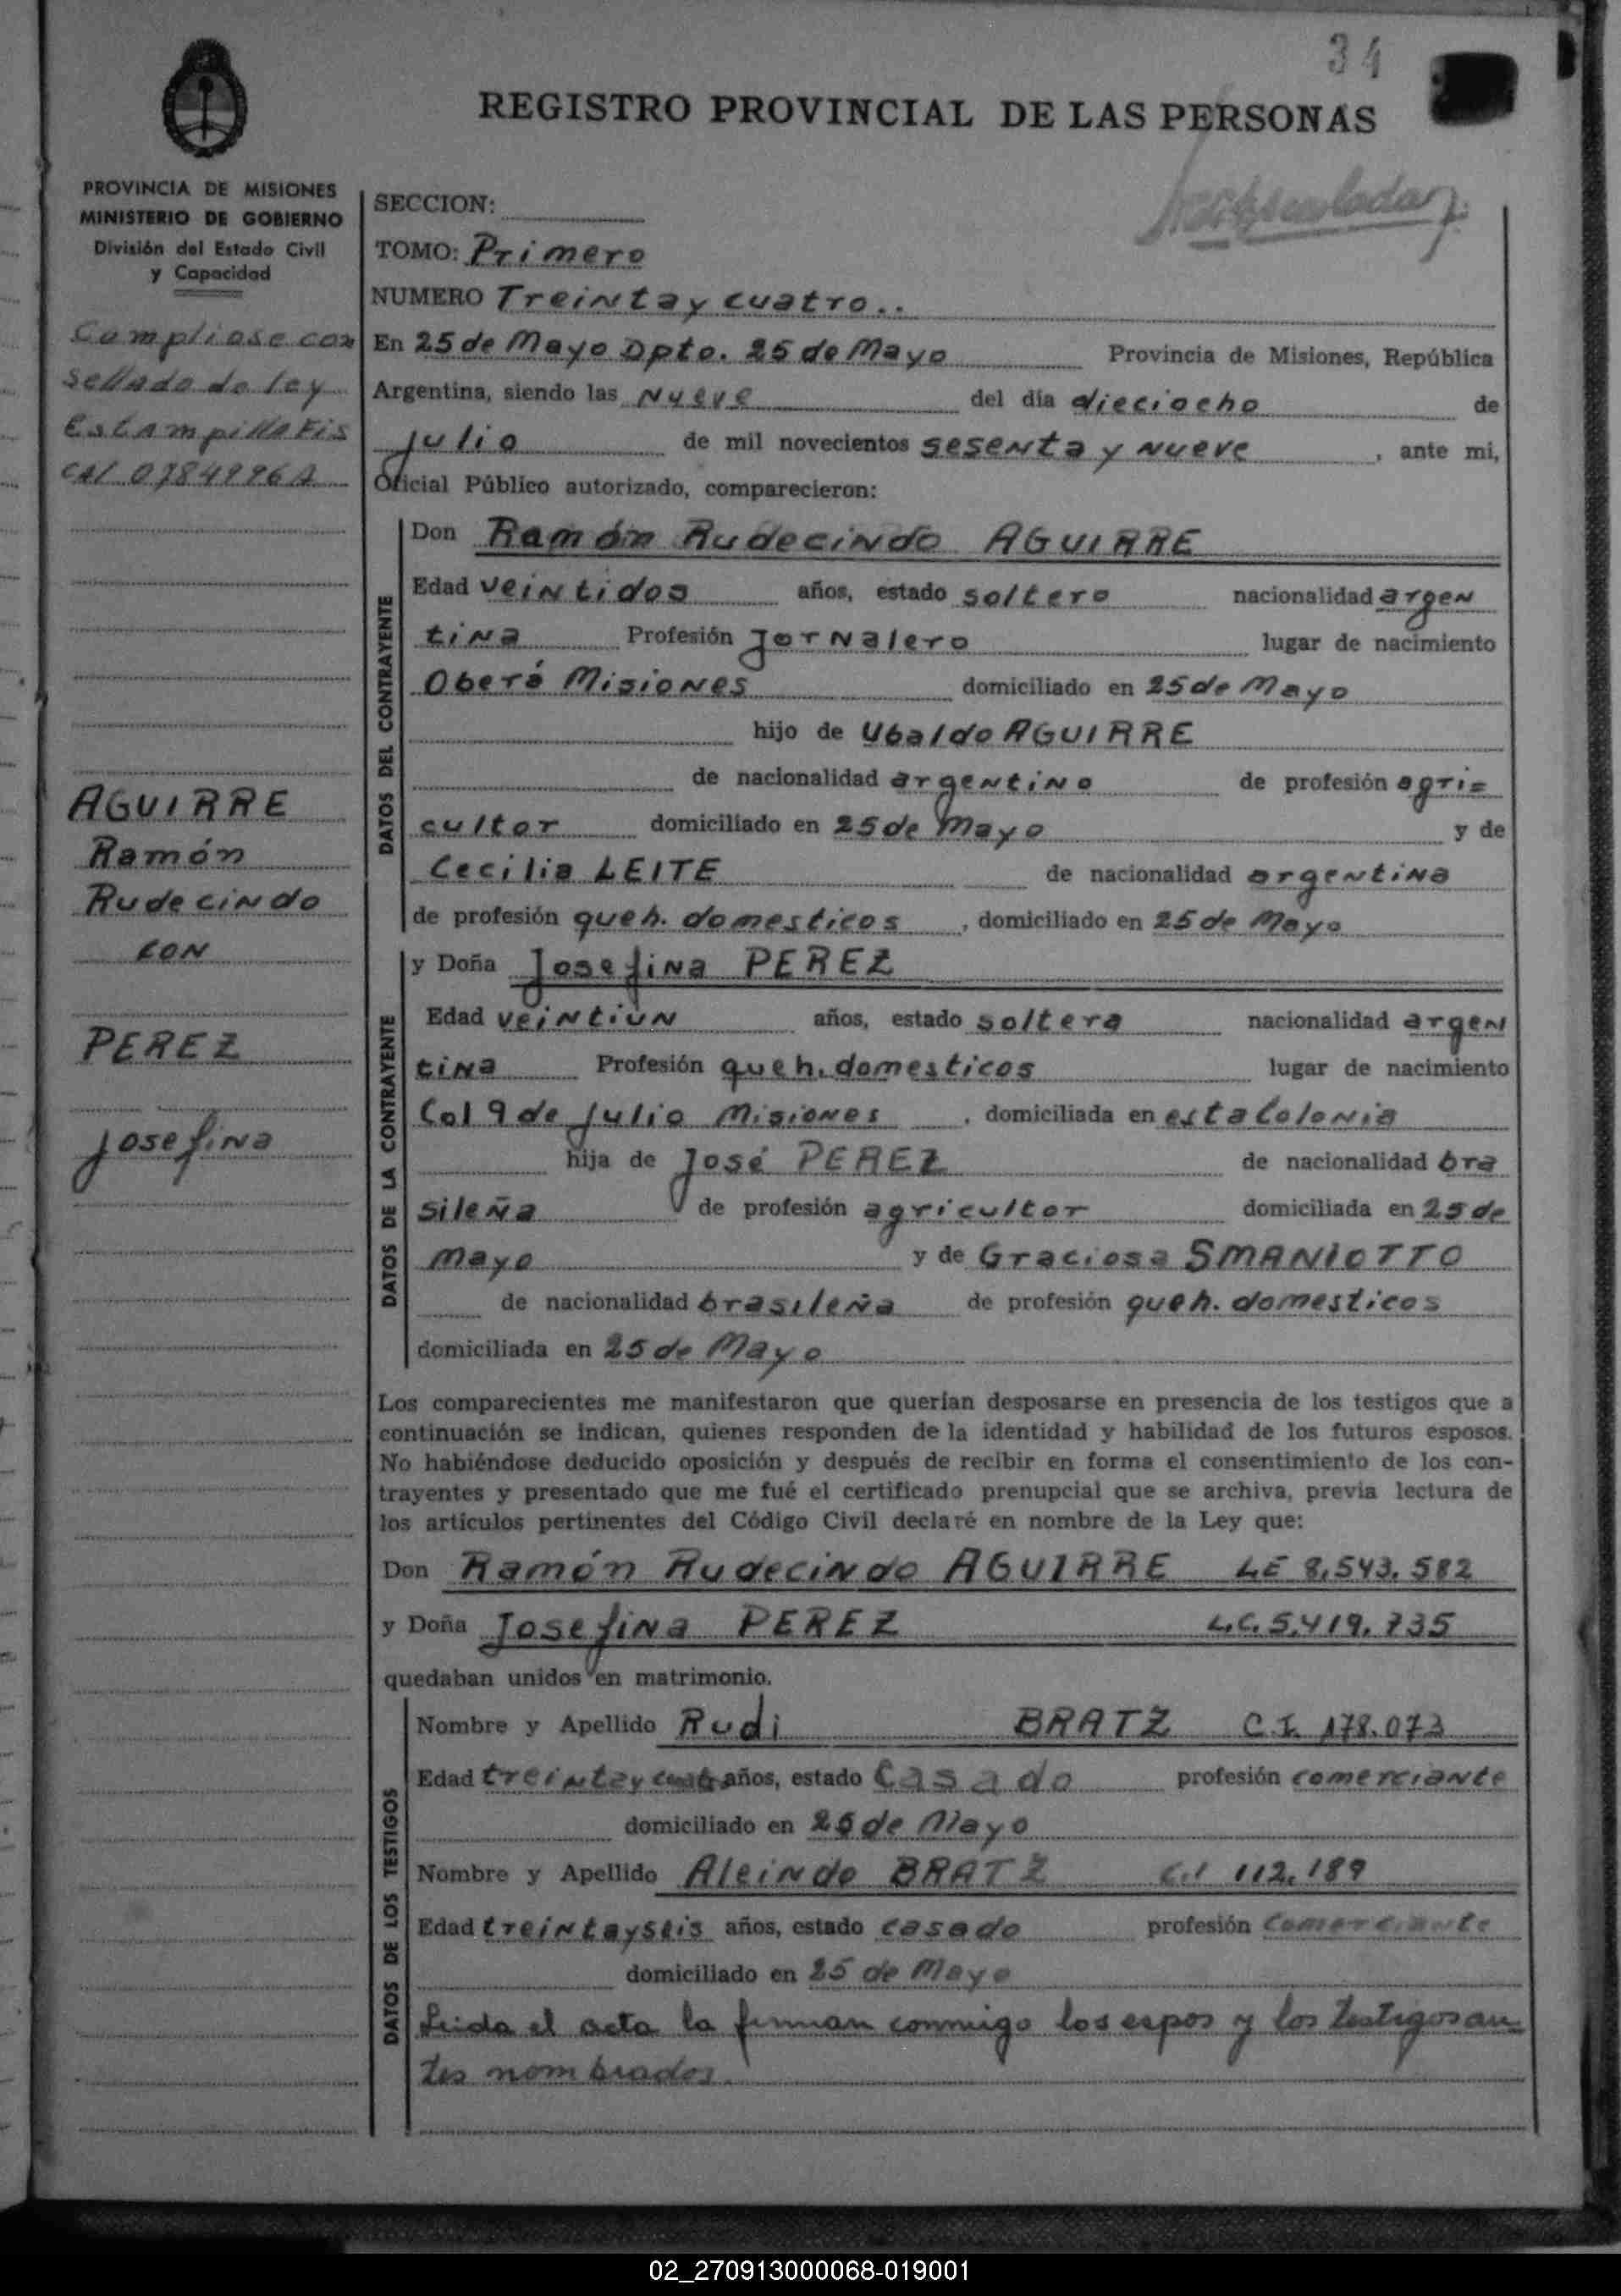 34
REGISTRO PROVINCIAL DE LAS PERSONAS
PROVINCIA DE MISIONES
MINISTERIO DE GOBIERNO
División del Estado Civil
y Capacidad
SECCION:
TOMO: Primero
NUMERO Treinta y cuatro..
En 25 de Mayo Dpto. 25 de Mayo Provincia de Misiones, República
Argentina, siendo las Nueve del día dieciocho de
julio de mil novecientos sesenta y Nueve, ante mi,
Oficial Público autorizado, comparecieron:
Compliose con
sellado de ley
Estampilla Fis
cal
AGUIRRE
Ramón
Rudecindo
CON
PEREZ
Josefina
DATOS DEL CONTRAYENTE
Don Ramón Rudecindo AGUIRRE
Edad veintidos años, estado soltero nacionalidad argen
tina Profesión Jornalero lugar de nacimiento
Oberá Misiones domiciliado en 25 de Mayo
hijo de Ubaldo AGUIRRE
de nacionalidad argentino de profesión agri=
cultor domiciliado en 25 de Mayo y de
Cecilia LEITE de nacionalidad argentina
de profesión queh. domesticos, domiciliado en 25 de Mayo
DATOS DE LA CONTRAYENTE
y Doña Josefina PEREZ
Edad veintiun años, estado soltera nacionalidad argen
tina Profesión queh. domesticos lugar de nacimiento
Col 9 de Julio Misiones, domiciliada en esta Colonia
hija de José PEREZ de nacionalidad bra
sileña de profesión agricultor domiciliada en 25 de
Mayo y de Graciosa SMANIOTTO
de nacionalidad brasileña de profesión queh. domesticos
domiciliada en 25 de Mayo
Los comparecientes me manifestaron que querían desposarse en presencia de los testigos que a
continuación se indican, quienes responden de la identidad y habilidad de los futuros esposos.
No habiéndose deducido oposición y después de recibir en forma el consentimiento de los con-
trayentes y presentado que me fué el certificado prenupcial que se archiva, previa lectura de
los artículos pertinentes del Código Civil declaré en nombre de la Ley que:
Don Ramón Rudecindo AGUIRRE LE 8,543.582
y Doña Josefina PEREZ L.C. 5,419.735
quedaban unidos en matrimonio.
DATOS DE LOS TESTIGOS
Nombre y Apellido Rudi BRATZ C.I. 178.073
Edad treinta y cuatro años, estado Casado profesión comerciante
domiciliado en 25 de Mayo
Nombre y Apellido Aleindo BRATZ C.I 112.189
Edad treinta y seis años, estado casado profesión Comerciante
domiciliado en 25 de Mayo
Leida el acta la firman conmigo los espos y los testigos an
tes nombrados.
02_270913000068-019001